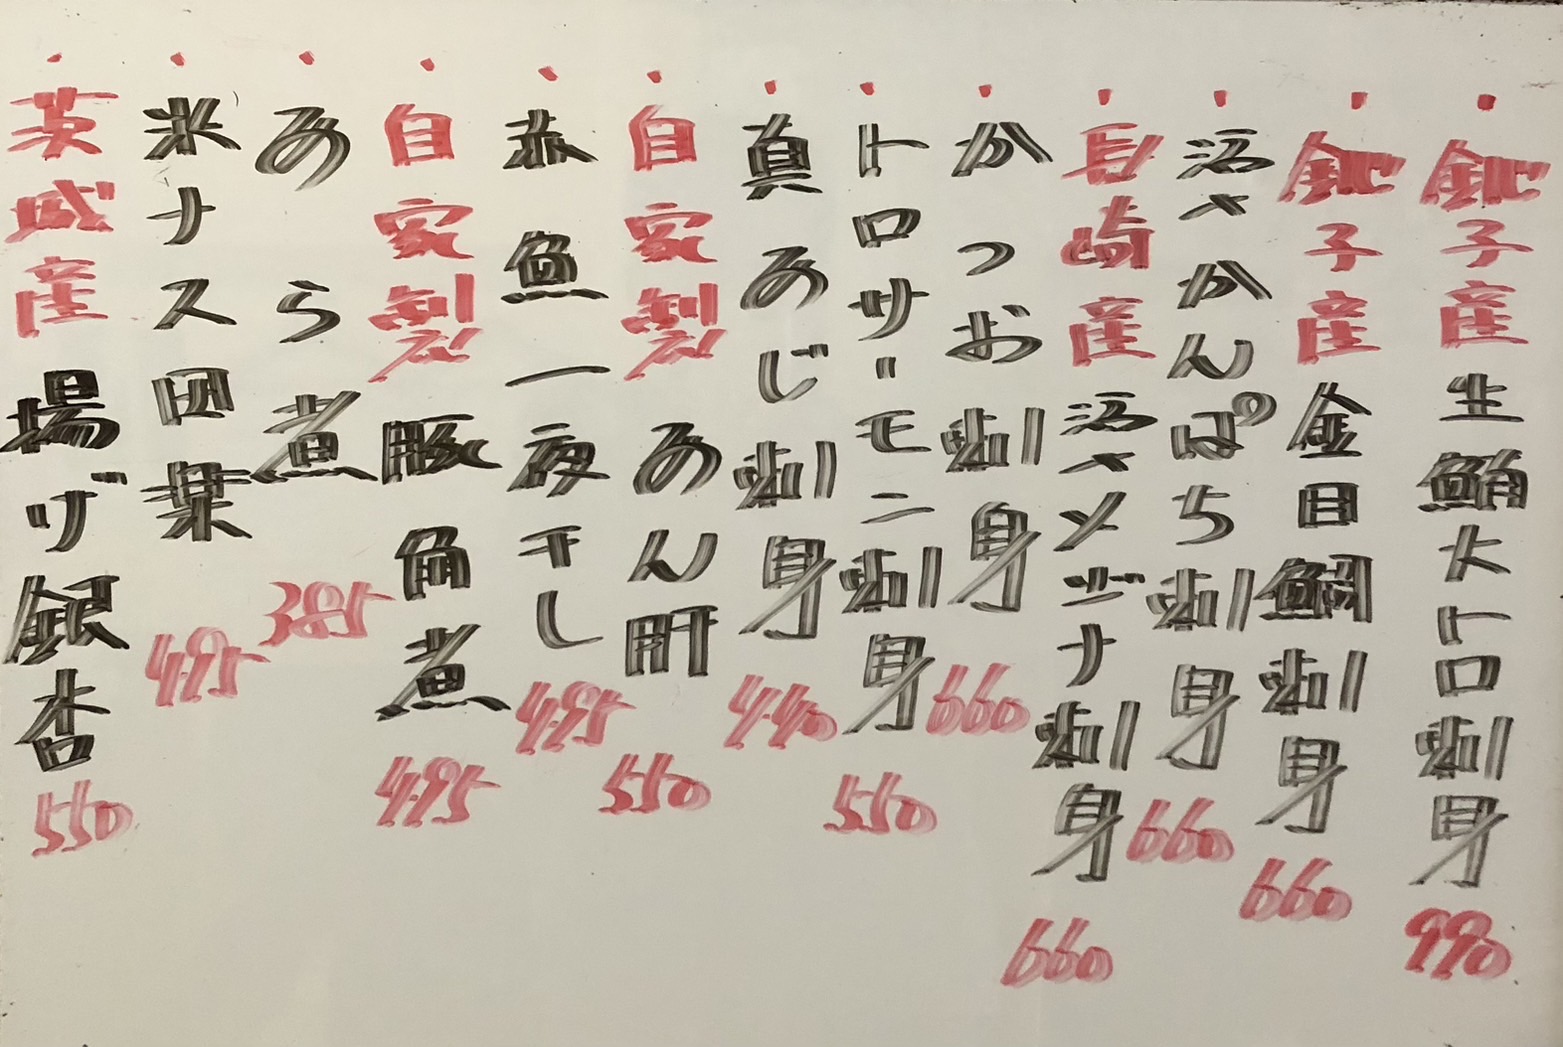 ・銚子産生鮪大トロ刺身 990
・銚子産金目鯛刺身 660
・活〆かんぱち刺身 660
・長崎産活〆メジナ刺身 660
・かつお刺身 660
・トロサーモン刺身 550
・真あじ刺身 440
・自家製あん肝 550
・赤魚一夜干し 495
・自家製豚角煮 495
・あら煮 385
・米ナス田楽 495
・茨城産揚げ銀杏 550